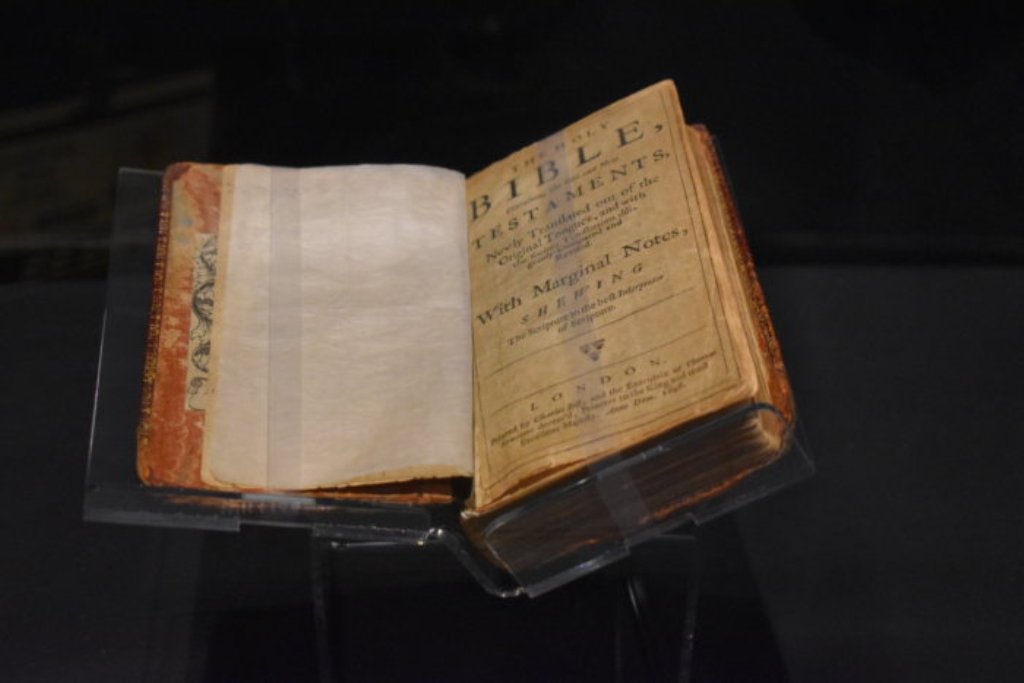 THE HOLY
BIBLE,
TESTAMENTS,
Newly Tranſlated out of the
Original Tongues, and with
the former Tranſlations dili-
gently Compared and
Reviſed.
With Marginal Notes,
SHEWING
The Scripture to the beſt Interpreter
of Scripture.
LONDON,
Printed by Charles Bill, and the Executrix of Thomas
Newcomb, deceas'd; Printers to the King and moſt
Excellent Majeſty. Anno Dom. 1698.